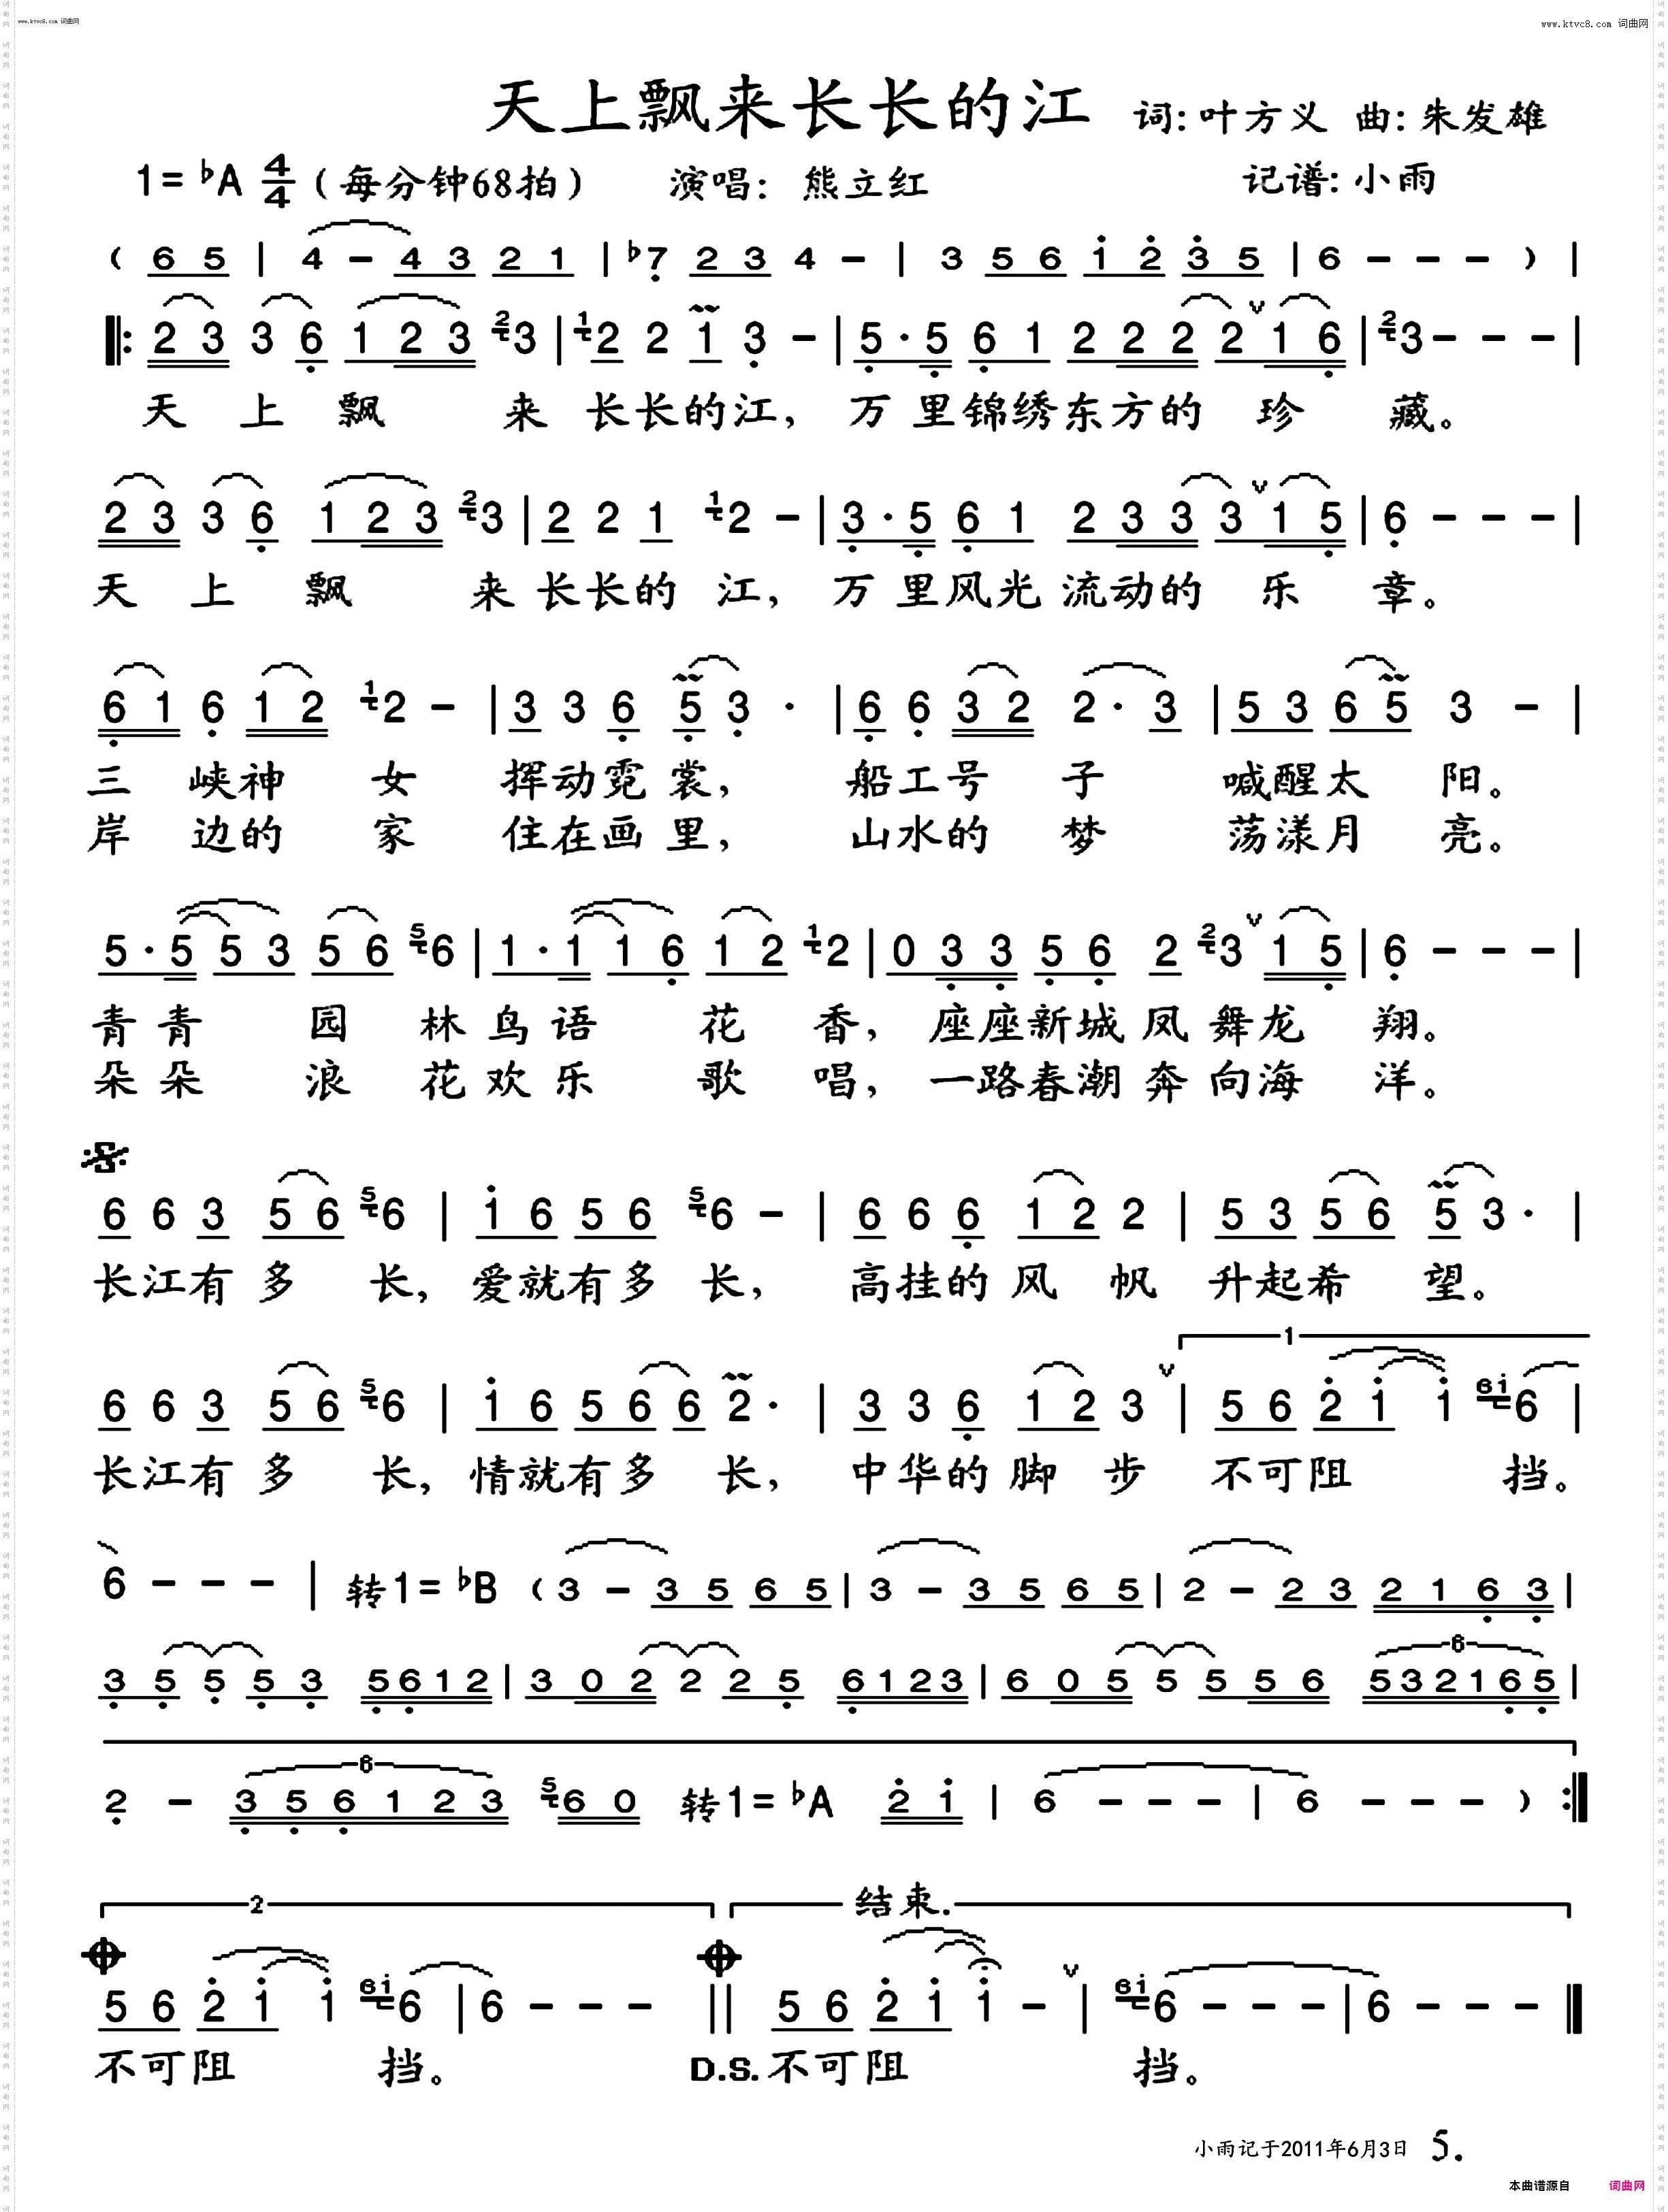 www.ktvc8.com 词曲网
www.ktvc8.com 词曲网
天上飘来长长的江 词:叶方义 曲:朱发雄
1=♭A 4/4 (每分钟68拍) 演唱: 熊立红 记谱:小雨
( 6 5 | 4 - 4 3 2 1 | ♭7 2 3 4 - | 3 5 6 i 2 3 5 | 6 - - - ) |
2 3 3 6 1 2 3 2 3 | 1 2 2 1 3 - | 5 · 5 6 1 2 2 2 2 v 1 6 | 2 3 - - - |
天 上 飘 来 长长的江, 万 里锦绣东方的 珍 藏。
2 3 3 6 1 2 3 2 3 | 2 2 1 1 2 - | 3 · 5 6 1 2 3 3 3 v 1 5 | 6 - - - |
天 上 飘 来 长长的 江, 万 里风光 流动的 乐 章。
6 1 6 1 2 1 2 - | 3 3 6 5 3 · | 6 6 3 2 2 · 3 | 5 3 6 5 3 - |
三 峡神 女 挥动霓 裳, 船工号 子 喊醒太 阳。
岸 边的 家 住在画 里, 山水的 梦 荡漾月 亮。
5 · 5 5 3 5 6 5 6 | 1 · 1 1 6 1 2 1 2 | 0 3 3 5 6 2 2 3 v 1 5 | 6 - - - |
青 青 园 林 鸟 语 花 香, 座座新城 凤 舞龙 翔。
朵 朵 浪 花 欢 乐 歌 唱, 一路春潮 奔 向海 洋。
6 6 3 5 6 5 6 | i 6 5 6 5 6 - | 6 6 6 1 2 2 | 5 3 5 6 5 3 · |
长江有 多 长, 爱就有多 长, 高挂的 风 帆 升起希 望。
1
6 6 3 5 6 5 6 | i 6 5 6 6 2 · | 3 3 6 1 2 3 v | 5 6 2 i i 6i 6 |
长江有 多 长, 情就有多 长, 中华的 脚 步 不可阻 挡。
6 - - - | 转1=♭B ( 3 - 3 5 6 5 | 3 - 3 5 6 5 | 2 - 2 3 2 1 6 3 |
6
3 5 5 5 3 5 6 1 2 | 3 0 2 2 2 5 6 1 2 3 | 6 0 5 5 5 5 6 5 3 2 1 6 5 |
6
2 - 3 5 6 1 2 3 5 6 0 转1=♭A 2 i | 6 - - - | 6 - - - ) :|
2 结束.
5 6 2 i i 6i 6 | 6 - - - || 5 6 2 i i - v | 6i 6 - - - | 6 - - - ‖
不可阻 挡。 D.S.不可阻 挡。
小雨记于2011年6月3日 5.
本曲谱源自 词曲网